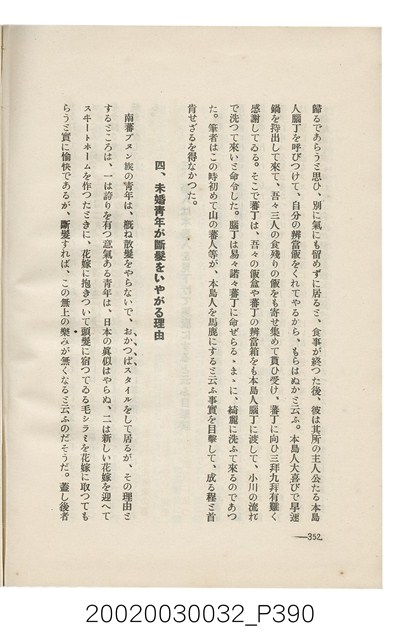 歸るであらうミ思ひ、別に氣にも留めずに居るミ、食事が終つた後、彼は其所の主人公たる本島
人腦丁を呼びつけて、自分の辨當飯をくれてやるから、もらはぬかミ云ふ。本島人大喜びで早速
鍋を持出して來て、吾々三人の食殘りの飯をも寄せ集めて貰ひ受け、蕃丁に向ひ三拜九拜有難く
感謝してゐる。そこで蕃丁は、吾々の飯盒や蕃丁の辨當箱をも本島人腦丁に渡して、小川の流れ
で洗つて來いミ命令した。腦丁は易々諾々蕃丁に命ぜらるゝまゝに、綺麗に洗ふて來るのであつ
た。筆者はこの時初めて山の蕃人等が、本島人を馬鹿にするミ云ふ事實を目擊して、成る程ミ首
肯せざるを得なかつた。
四、未婚靑年が斷髮をいやがる理由
南蕃ブヌン族の靑年は、概ね散髮をやらないで、おかつぱスタイルをして居るが、その理由ミ
するミころは、一は誇りを有つ意氣ある靑年は、日本の眞似はやらぬ、二は新しい花嫁を迎へて
スヰートホームを作つたミきに、花嫁に抱きついて頭髮に宿つてゐる毛シラミを花嫁に取つても
らうミ實に愉快であるが、斷髮すれば、この無上の樂みが無くなるミ云ふのだそうだ。蓋し後者
—352—
20020030032_P390